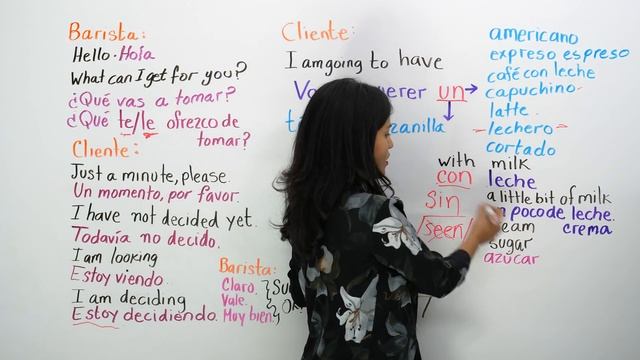 Barista:
Hello. Hola
What can I get for you?
¿Qué vas a tomar?
¿Qué te/le ofrezco de
tomar?
Cliente:
Just a minute, please.
Un momento, por favor.
I have not decided yet.
Todavía no decido.
I am looking
Estoy viendo.
I am deciding
Estoy decidiendo.
Barista:
Claro.
Vale.
Muy bien.
Cliente:
I am going to have
un
americano
expreso espreso
café con leche
capuchino
latte
lechero
cortado
with milk
con leche
sin
/seen/
a little bit of milk
poco de leche.
crema
sugar
azúcar